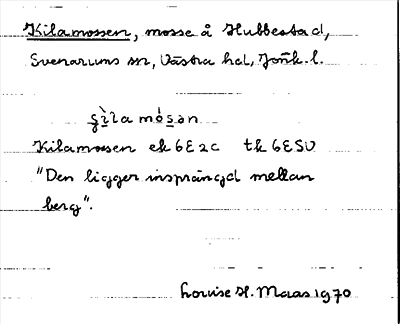 Kilamossen, mosse å Hubbestad,
Svenarums sn, Västra hd, Jönk. l.
ʂìla mósən
Kilamossen ek 6E2c tk 6E5U
"Den ligger insprängd mellan
berg".
Louise H. Maas 1970